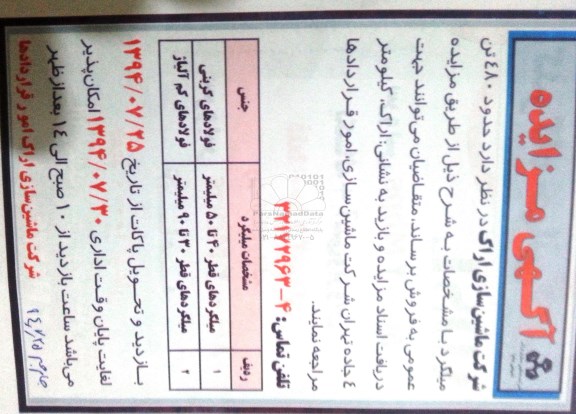 آگهی مزایده
شرکت ماشین سازی اراک در نظر دارد حدود ۴۸۰ تن
میلگرد با مشخصات به شرح ذیل از طریق مزایده
عمومی به فروش برساند، متقاضیان می‌توانند جهت
دریافت اسناد مزایده و بازدید به نشانی: اراک، کیلومتر
۴ جاده تهران شرکت ماشین سازی، امور قراردادها
مراجعه نمایند.
تلفن تماس: ۴-۳۲۱۷۲۹۶۳
ردیف مشخصات میلگرد جنس
۱ میلگردهای قطر ۴۰ تا ۵۰ میلیمتر فولادهای کربنی
۲ میلگردهای قطر ۳۰ تا ۹۰ میلیمتر فولادهای کم آلیاژ
بازدید و تحویل پاکات از تاریخ ۱۳۹۴/۰۷/۲۵
لغایت پایان وقت اداری ۱۳۹۴/۰۷/۳۰ امکان‌پذیر
می‌باشد ساعت بازدید از ۱۰ صبح الی ۱۴ بعدازظهر
شرکت ماشین سازی اراک امور قراردادها
ParsNamadData